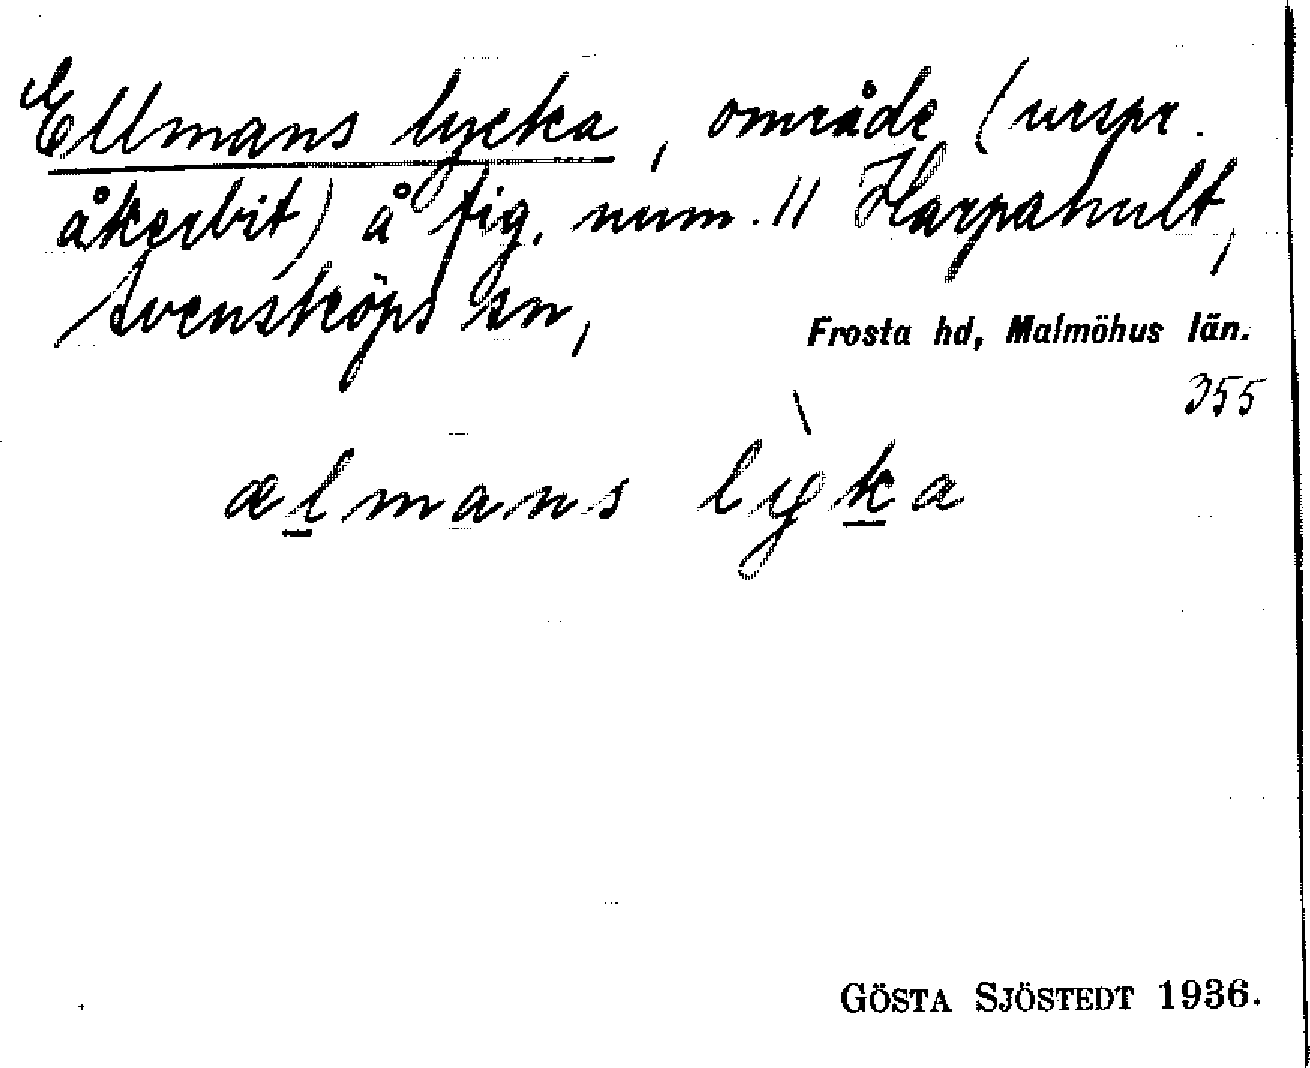 Ellmans lycka, område (urspr.
åkerbit) å fig. num. 11 Harpahult,
Svensköps sn,
Frosta hd, Malmöhus län.
355
ælmans lỳka
GÖSTA SJÖSTEDT 1936.